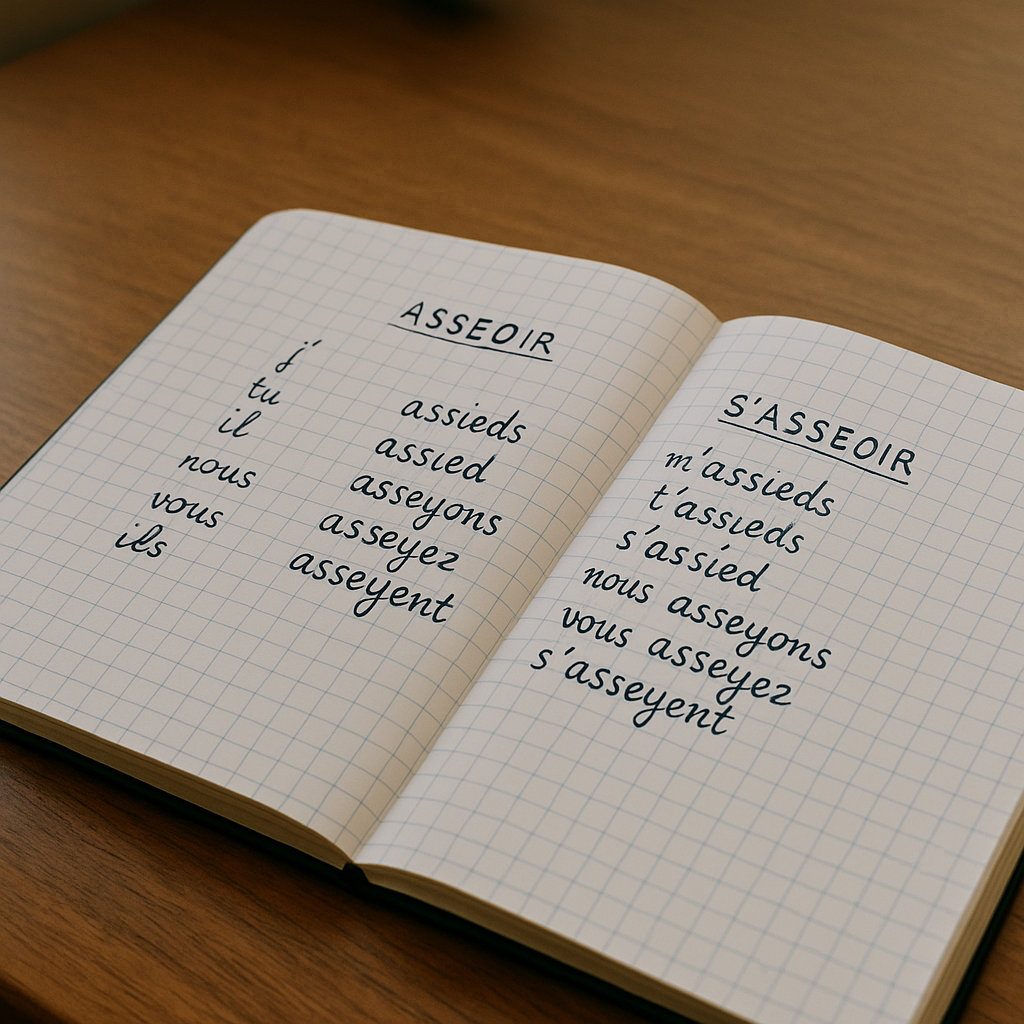 ASSEOIR
j'
tu
il
nous
vous
ils
assieds
assied
asseyons
asseyez
asseyent
S'ASSEOIR
m'assieds
t'assieds
s'assied
nous asseyons
vous asseyez
s'asseyent